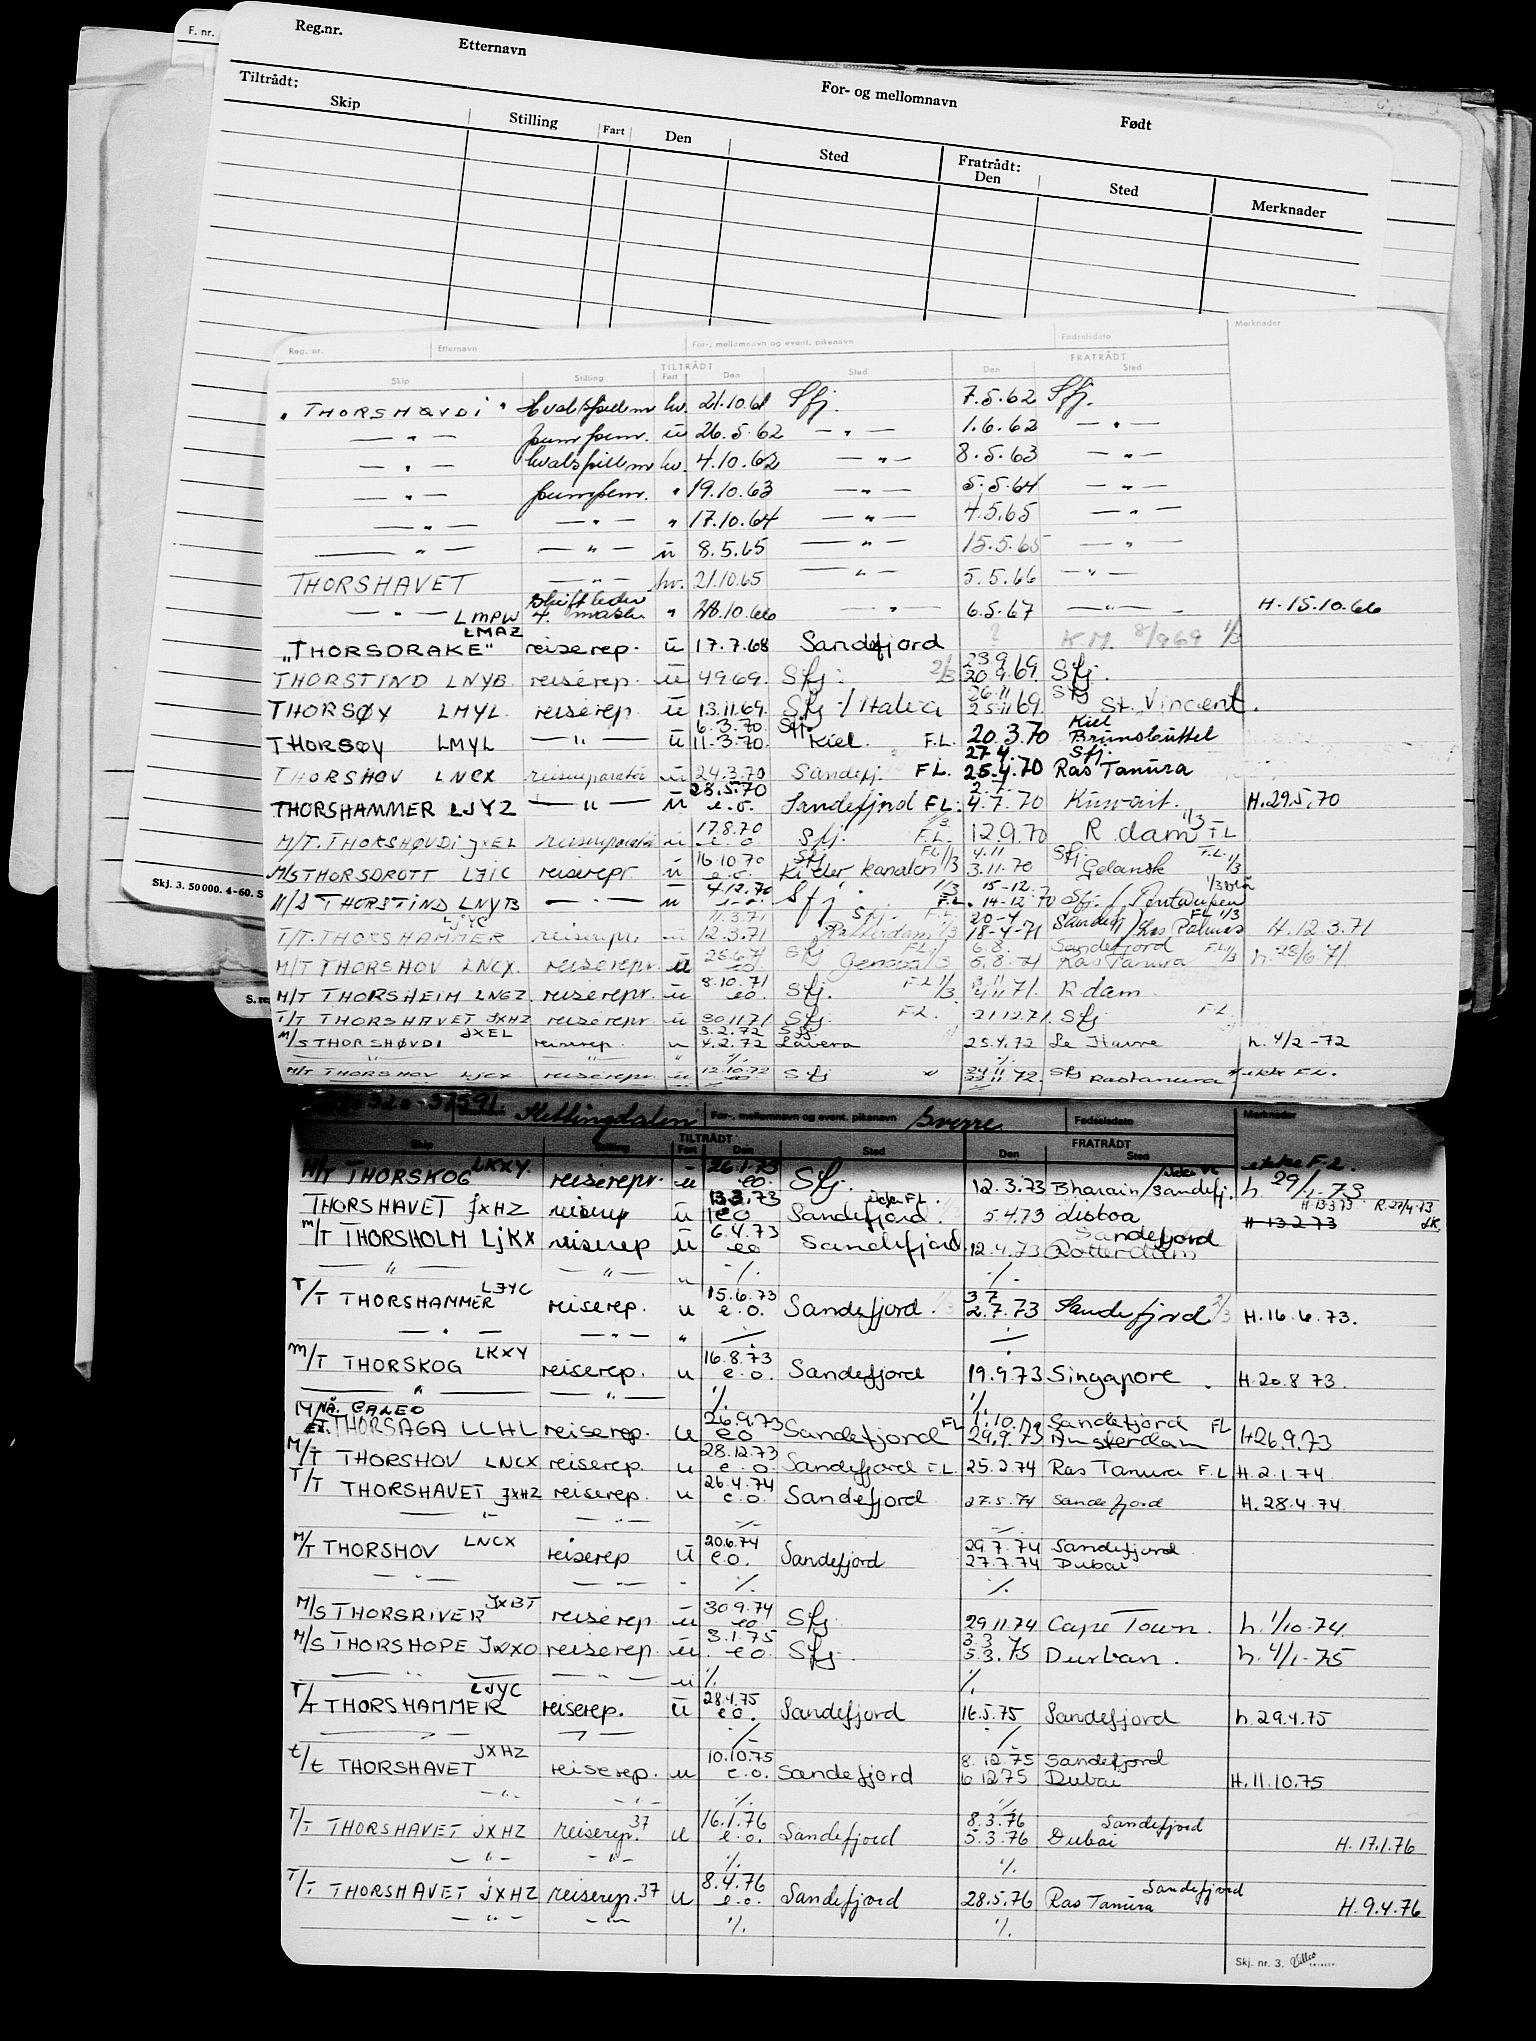 F. nr.
Reg.nr. Etternavn For- og mellomnavn Født
Tiltrådt: Fratrådt:
Skip Stilling Fart Den Sted Den Sted Merknader
Reg. nr. Etternavn For-, mellomnavn og event. pikenavn Fødselsdato Merknader
TILTRÅDT FRATRÅDT
Skip Stilling Fart Den Sted Den Sted
" THORSHØVDI " hv. 21.10.61 Sfj. 7.5.62 Sfj.
— " — pumpem. u 26.5.62 — " — 1.6.62 — " —
— " — hv. 4.10.62 — " — 8.5.63 — " —
— " — pumpem. " 19.10.63 — " — 5.5.64 — " —
— " — — " — " 17.10.64 — " — 4.5.65 — " —
— " — — " — u 8.5.65 — " — 15.5.65 — " —
THORSHAVET — " — hv. 21.10.65 — " — 5.5.66 — " —
— " — LMPW 4. mask. " 28.10.66 — " — 6.5.67 — " — H. 15.10.66
LMAZ
"THORSDRAKE" reiserep. u 17.7.68 Sandefjord ? K.M. 8/9 69 1/3
THORSTIND LNYB reiserep. u 4969. Sfj. 2/3 23.9.69. 20.9.69. Sfj.
THORSØY LMYL. reiserep. u 13.11.69. Sfj 26.11 25.11 69. Sfj St. Vincent.
THORSØY LMYL — " — u 6.3.70 11.3.70. Sfj. Kiel. F.L. 20.3.70 Kiel Brunsbüttel
THORSHOV LNCX reisereparatør u 24.3.70 Sandefj. F.L. 27.4. 25.4.70 Sfj. Ras Tanura
THORSHAMMER LJYZ — " — u 28.5.70 e.o. Sandefjord F.L. 4.7.70 Kuwait. H.29.5.70
M/T. THORSHØVDI JXEL reisereparatør u 17.8.70 e.o. Sfj. F.L. 12.9.70 R dam 1/3 FL
M/S THORSDROTT LJIC reiserepr. u 16.10.70 e.o. Sfj FL 1/3 4.11 3.11.70 Sfj F.L. 1/3 Gdansk
M/S THORSTIND LNYB — " — u 4.12.70 e.o. Sfj. 1/3 F.L. 15-12. 14-12.70 Sfj. / Antwerpen
T/T. THORSHAMMER LJYC reiserepr. u 11.3.71 12.3.71 Sfj. F.L. Rotterdam 1/3 20-4 18-4-71 Sandefj / Las Palmas FL 1/3 H. 12.3.71
M/T THORSHOV LNCX. reiserepr. u 25.6.71 eo Sfj Genova FL 1/3 6.8. 5.8.71 Sandefjord Ras Tanura F.L. 1/3 h. 25/6.71
M/T THORSHEIM LNGZ reiserepr. u 8.10.71 eo. Sfj. F.L. 1/3 4.11.71. R dam
T/T THORSHAVET JXHZ reiserepr. u 30.11.71 Sfj F.L. 21.12.71. Sfj F.L.
M/S THORSHØVDI JXEL reiserep. u 3.2.72 4.2.72 Sfj Lavera 25.4.72 Le Havre h. 4/2 -72
— " — — " — " ./. ./.
M/T THORSHOV LJCX reiserepr u 12.10.72 eo Sfj 24.11 22.11.72. Sfj Rastanura * ikke F.L.
Skj. 3. 50 000. 4-60. S
S. reg
57591 Slettingdalen For-, mellomnavn og event. pikenavn Sverre Fødselsdato Merknader
TILTRÅDT FRATRÅDT
Skip Stilling Fart Den Sted Den Sted
M/T THORSKOG LKXY. reiserepr. u 26.1.73 eo. Sfj. 12.3.73 Bharain/Sandefj. ikke F.L. h. 29/1-73
THORSHAVET JXHZ reiserep u 13.3.73 eo ikke FL. Sandefjord. 5.4.73 Lisboa H 13.3.73 R.27/4-73
H 13.2.73 LK
M/T THORSHOLM LJKX reiserep u 6.4.73 eo Sandefjord. 12.4.73 Sandefjord Rotterdam
— " — — " — " ./. ./.
T/T THORSHAMMER LJYC reiserep. u 15.6.73 e.o. Sandefjord. 1/3 3 7 2.7.73 Sandefjord 2/3 H.16.6.73.
— " — — " — " ./. ./.
M/T THORSKOG LKXY reiserep. u 16.8.73 e.o. Sandefjord 19.9.73 Singapore. H.20.8 73.
— " — — " — ./. ./.
M/ NÅ. CALEO
EX. THORSAGA LLHL reiserep. u 26.9.73 eo Sandefjord FL 1.10.73 29.9.73 Sandefjord Amsterdam FL H26.9.73
M/T THORSHOV LNCX reiserep. u 28.12.73 e.o. Sandefjord F.L. 25.2.74 Ras Tanura F.L H.2.1.74.
T/T THORSHAVET JXHZ reiserep. u 26.4.74 e.o. Sandefjord 27.5.74 Sandefjord H.28.4.74
— " — — " — ./. ./.
M/T THORSHOV LNCX reiserep u 20.6.74 e.o. Sandefjord 29.7.74 27.7.74 Sandefjord Dubai
— " — — " — " ./. ./.
M/S THORSRIVER JXBT reiserep u 30.9.74 eo Sfj 29.11.74 Cape Town. h. 1/10.74.
M/S THORSHOPE JWXO reiserep. u. 3.1.75 eo. Sfj. 3.3 5.3.75 Durban. h. 4/1-75
— " — — " — u ./. ./.
T/T THORSHAMMER LJYC reiserep. u 28.4.75 e.o. Sandefjord 16.5.75 Sandefjord h. 29.4.75
— " — — " — ./. ./.
t/t THORSHAVET JXHZ reiserep. u 10.10.75 e.o. Sandefjord 8.12.75 6 12 75 Sandefjord Dubai H.11.10.75
— " — — " — ./. ./.
T/T THORSHAVET JXHZ reiserep. 37 u 16.1.76 e.o. Sandefjord 8.3.76 5.3.76 Sandefjord Dubai H. 17.1.76
— " — — " — ./. ./.
T/T THORSHAVET JXHZ reiserep. 37 u 8.4.76 e.o. Sandefjord 28.5.76 Sandefjord Ras Tanura H. 9.4.76
— " — — " — ./. ./.
Skj. nr. 3.